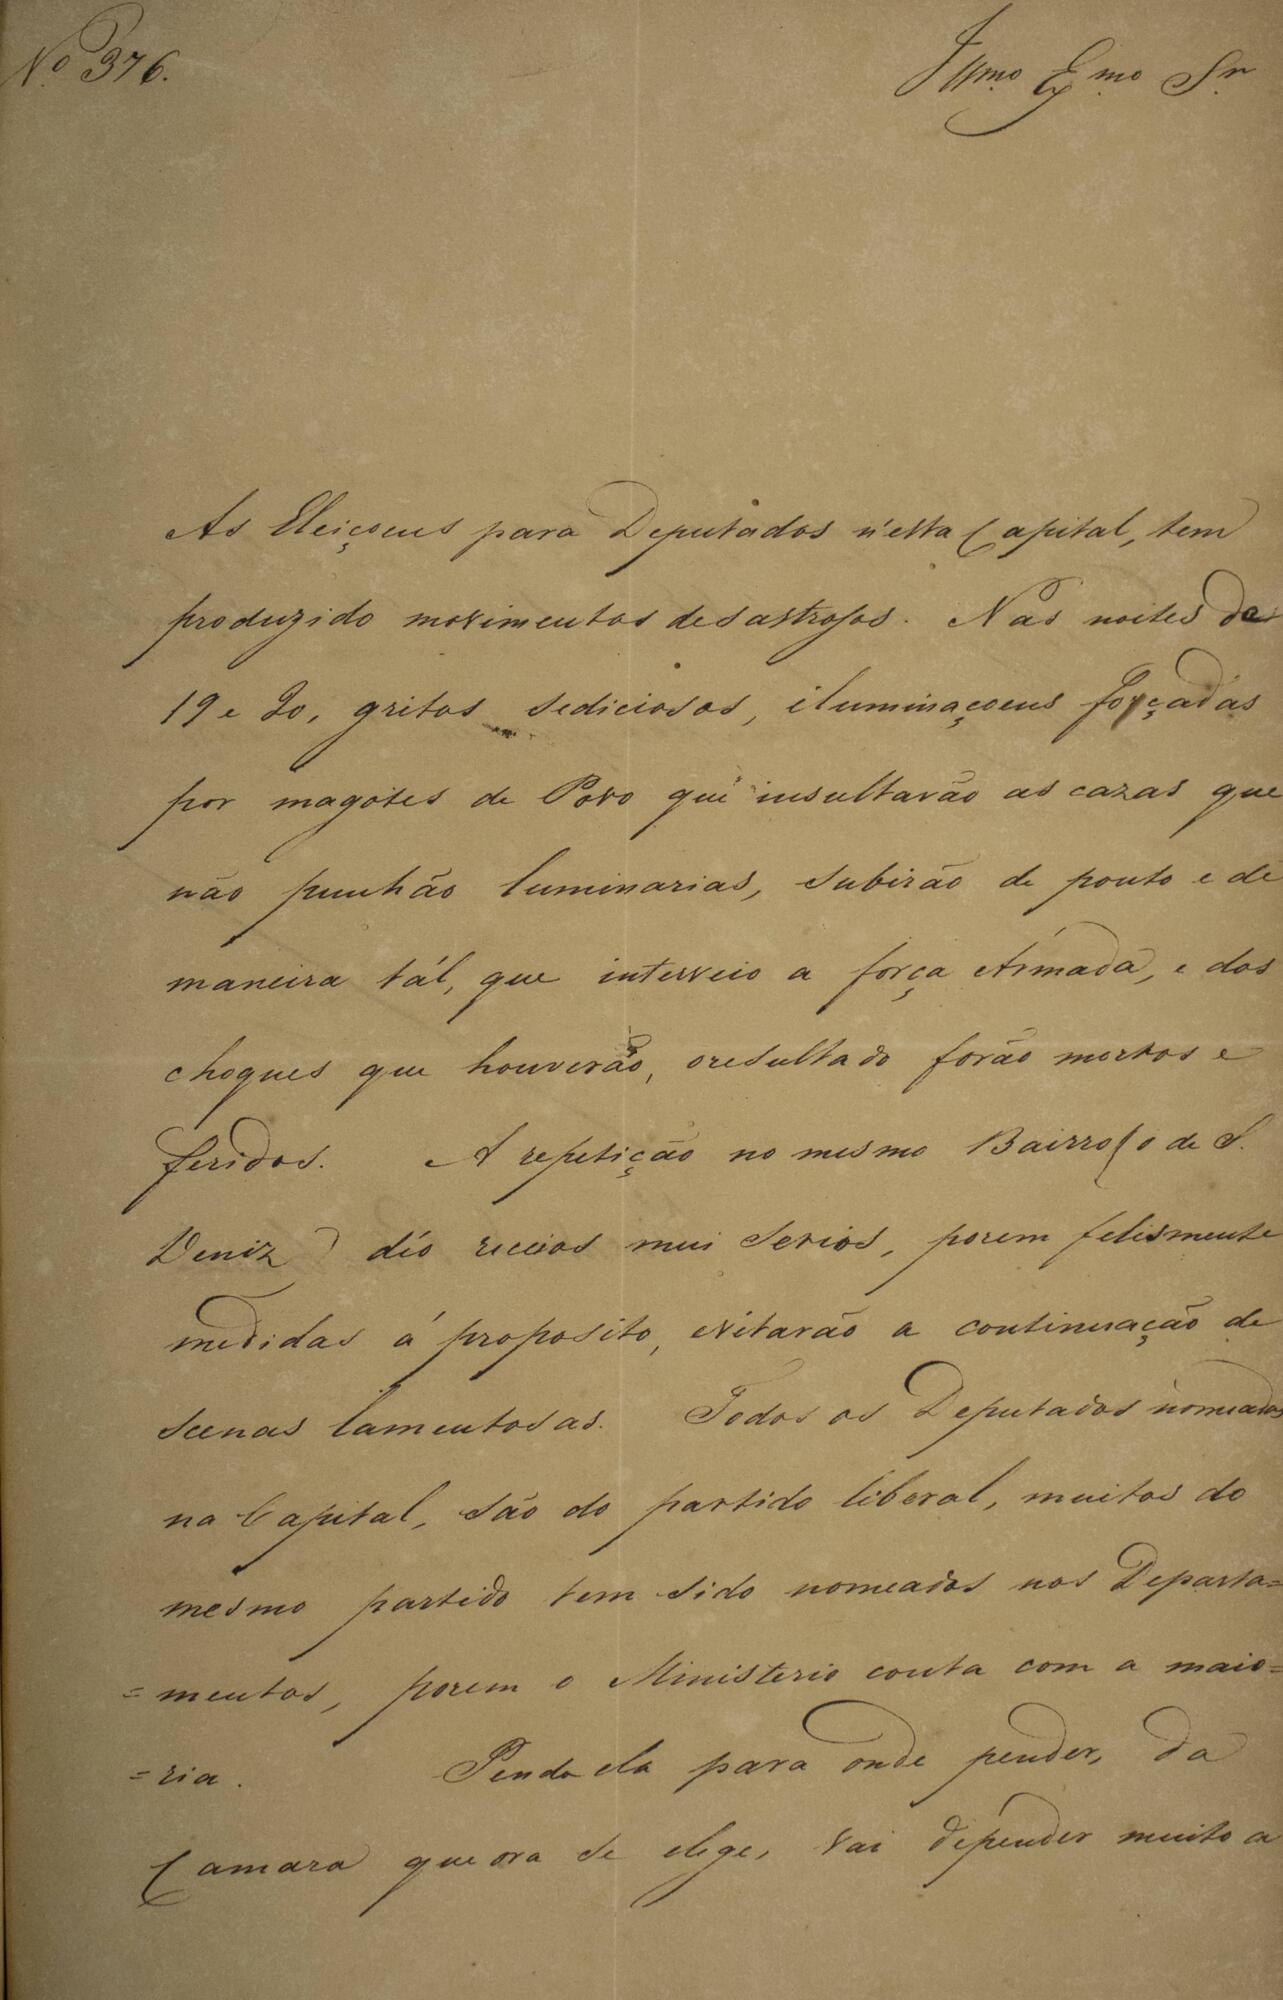 Nº 376.
Illmo Exmo Sr
As Eleiçoens para Deputados n'esta Capital, tem
produzido movimentos desastrosos. Nas noites de
19 e 20, gritos sediciosos, iluminaçoens forçadas
por magotes de Povo que insultarão as cazas que
não punhão luminarias, subirão de ponto e de
maneira tál, que interveio a força Armada, e dos
choques que houverão, o resultado forão mortos e
feridos. A repetição no mesmo Bairro (o de S.
Deniz) dêo receios mui serios, porem felismente
medidas á proposito, evitarão a continuação de
scenas lamentosas. Todos os Deputados nomeados
na Capital, são do partido liberal, muitos do
mesmo partido tem sido nomeados nos Departa=
=mentos, porem o Ministerio conta com a maio=
=ria. Penda ela para onde pender, da
Camara que ora se elege, vai depender muito a